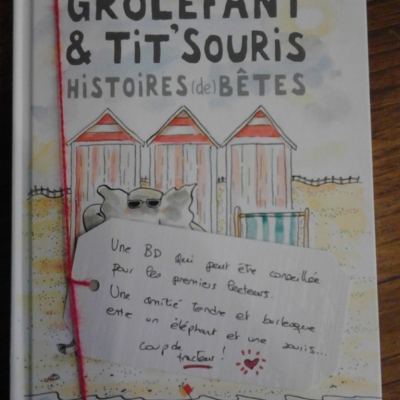 GROLÉFANT
& TIT'SOURIS
HISTOIRES (de) BÊTES
Une BD qui peut être conseillée
pour les premiers lecteurs.
Une amitié tendre et burlesque
entre un éléphant et une souris...
coup de tracteur !